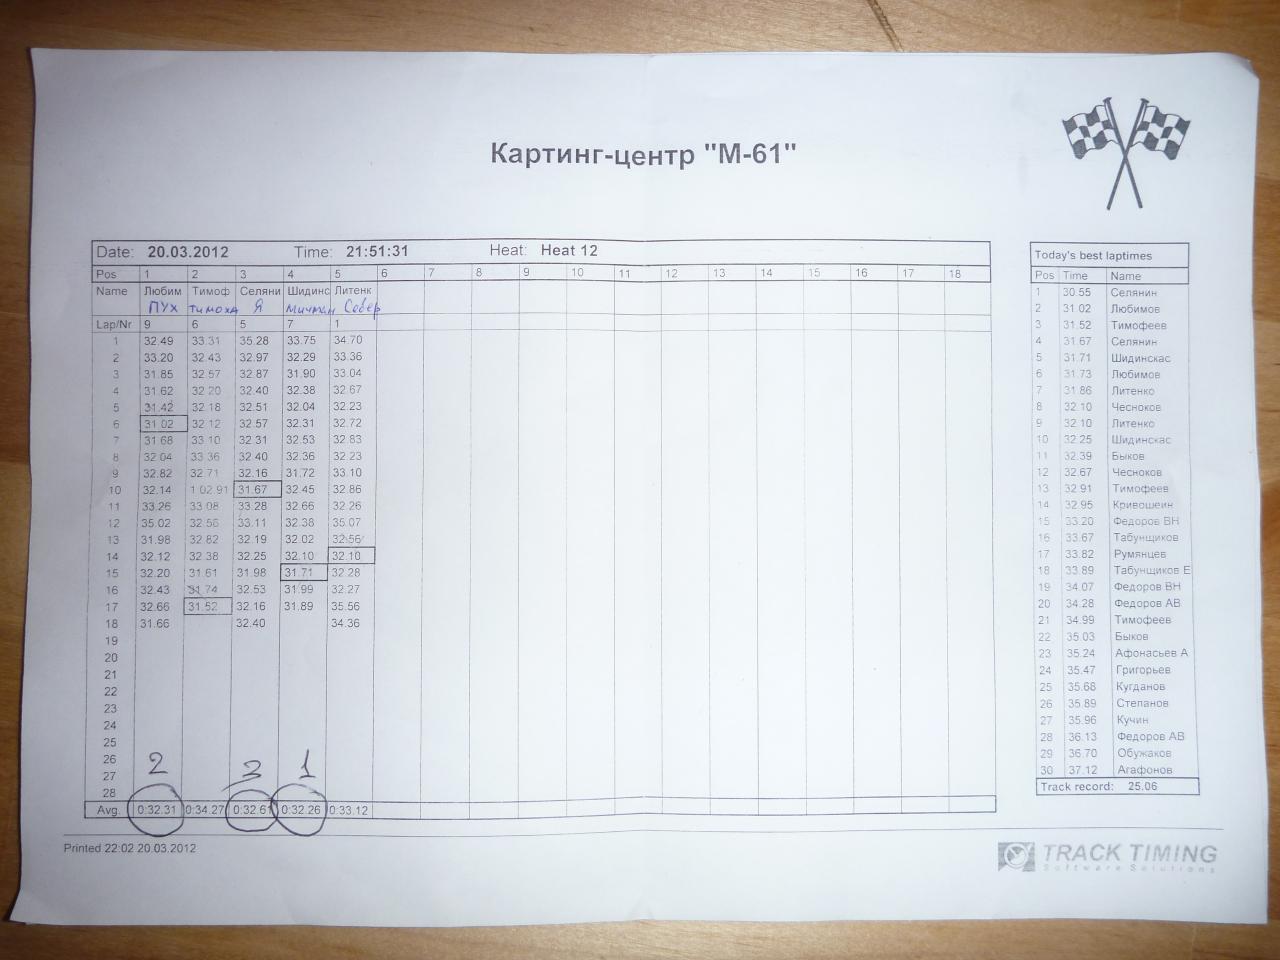 Картинг-центр "М-61"
Date: 20.03.2012 Time: 21:51:31 Heat: Heat 12
Pos 1 2 3 4 5 6 7 8 9 10 11 12 13 14 15 16 17 18
Name Любим Тимоф Селяни Шидинс Литенк
ПУХ Тимоха Я Мичман Север
Lap/Nr 9 6 5 7 1
1 32.49 33.31 35.28 33.75 34.70
2 33.20 32.43 32.97 32.29 33.36
3 31.85 32.57 32.87 31.90 33.04
4 31.62 32.20 32.40 32.38 32.67
5 31.42 32.18 32.51 32.04 32.23
6 31.02 32.12 32.57 32.31 32.72
7 31.68 33.10 32.31 32.53 32.83
8 32.04 33.36 32.40 32.36 32.23
9 32.82 32.71 32.16 31.72 33.10
10 32.14 1 02.91 31.67 32.45 32.86
11 33.26 33.08 33.28 32.66 32.26
12 35.02 32.56 33.11 32.38 35.07
13 31.98 32.82 32.19 32.02 32.56
14 32.12 32.38 32.25 32.10 32.10
15 32.20 31.61 31.98 31.71 32.28
16 32.43 31.74 32.53 31.99 32.27
17 32.66 31.52 32.16 31.89 35.56
18 31.66 32.40 34.36
19
20
21
22
23
24
25
26
27
28
2 3 1
Avg. 0:32.31 0:34.27 0:32.61 0:32.26 0:33.12
Printed 22:02 20.03.2012
Today's best laptimes
Pos Time Name
1 30.55 Селянин
2 31.02 Любимов
3 31.52 Тимофеев
4 31.67 Селянин
5 31.71 Шидинскас
6 31.73 Любимов
7 31.86 Литенко
8 32.10 Чесноков
9 32.10 Литенко
10 32.25 Шидинскас
11 32.39 Быков
12 32.67 Чесноков
13 32.91 Тимофеев
14 32.95 Кривошеин
15 33.20 Федоров ВН
16 33.67 Табунщиков
17 33.82 Румянцев
18 33.89 Табунщиков Е
19 34.07 Федоров ВН
20 34.28 Федоров АВ
21 34.99 Тимофеев
22 35.03 Быков
23 35.24 Афонасьев А
24 35.47 Григорьев
25 35.68 Кугданов
26 35.89 Степанов
27 35.96 Кучин
28 36.13 Федоров АВ
29 36.70 Обужаков
30 37.12 Агафонов
Track record: 25.06
TRACK TIMING
Software Solutions